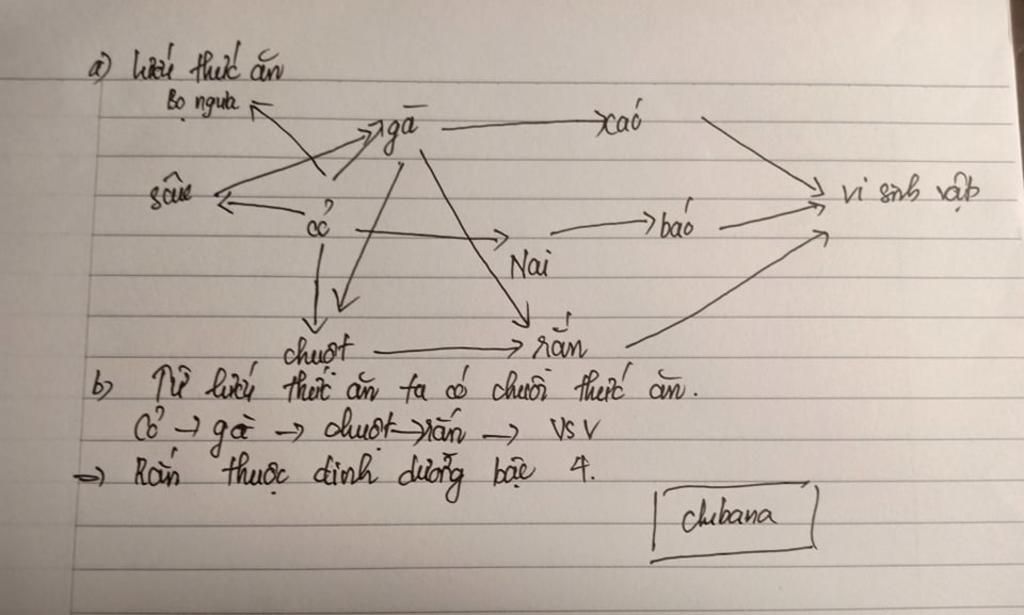 a) lưới thức ăn
Bọ ngựa
gà
cáo
sâu
vi sinh vật
cỏ
báo
Nai
chuột
rắn
b) Từ lưới thức ăn ta có chuỗi thức ăn.
Cỏ → gà → chuột → rắn → VSV
→ Rắn thuộc dinh dưỡng bậc 4.
chibana